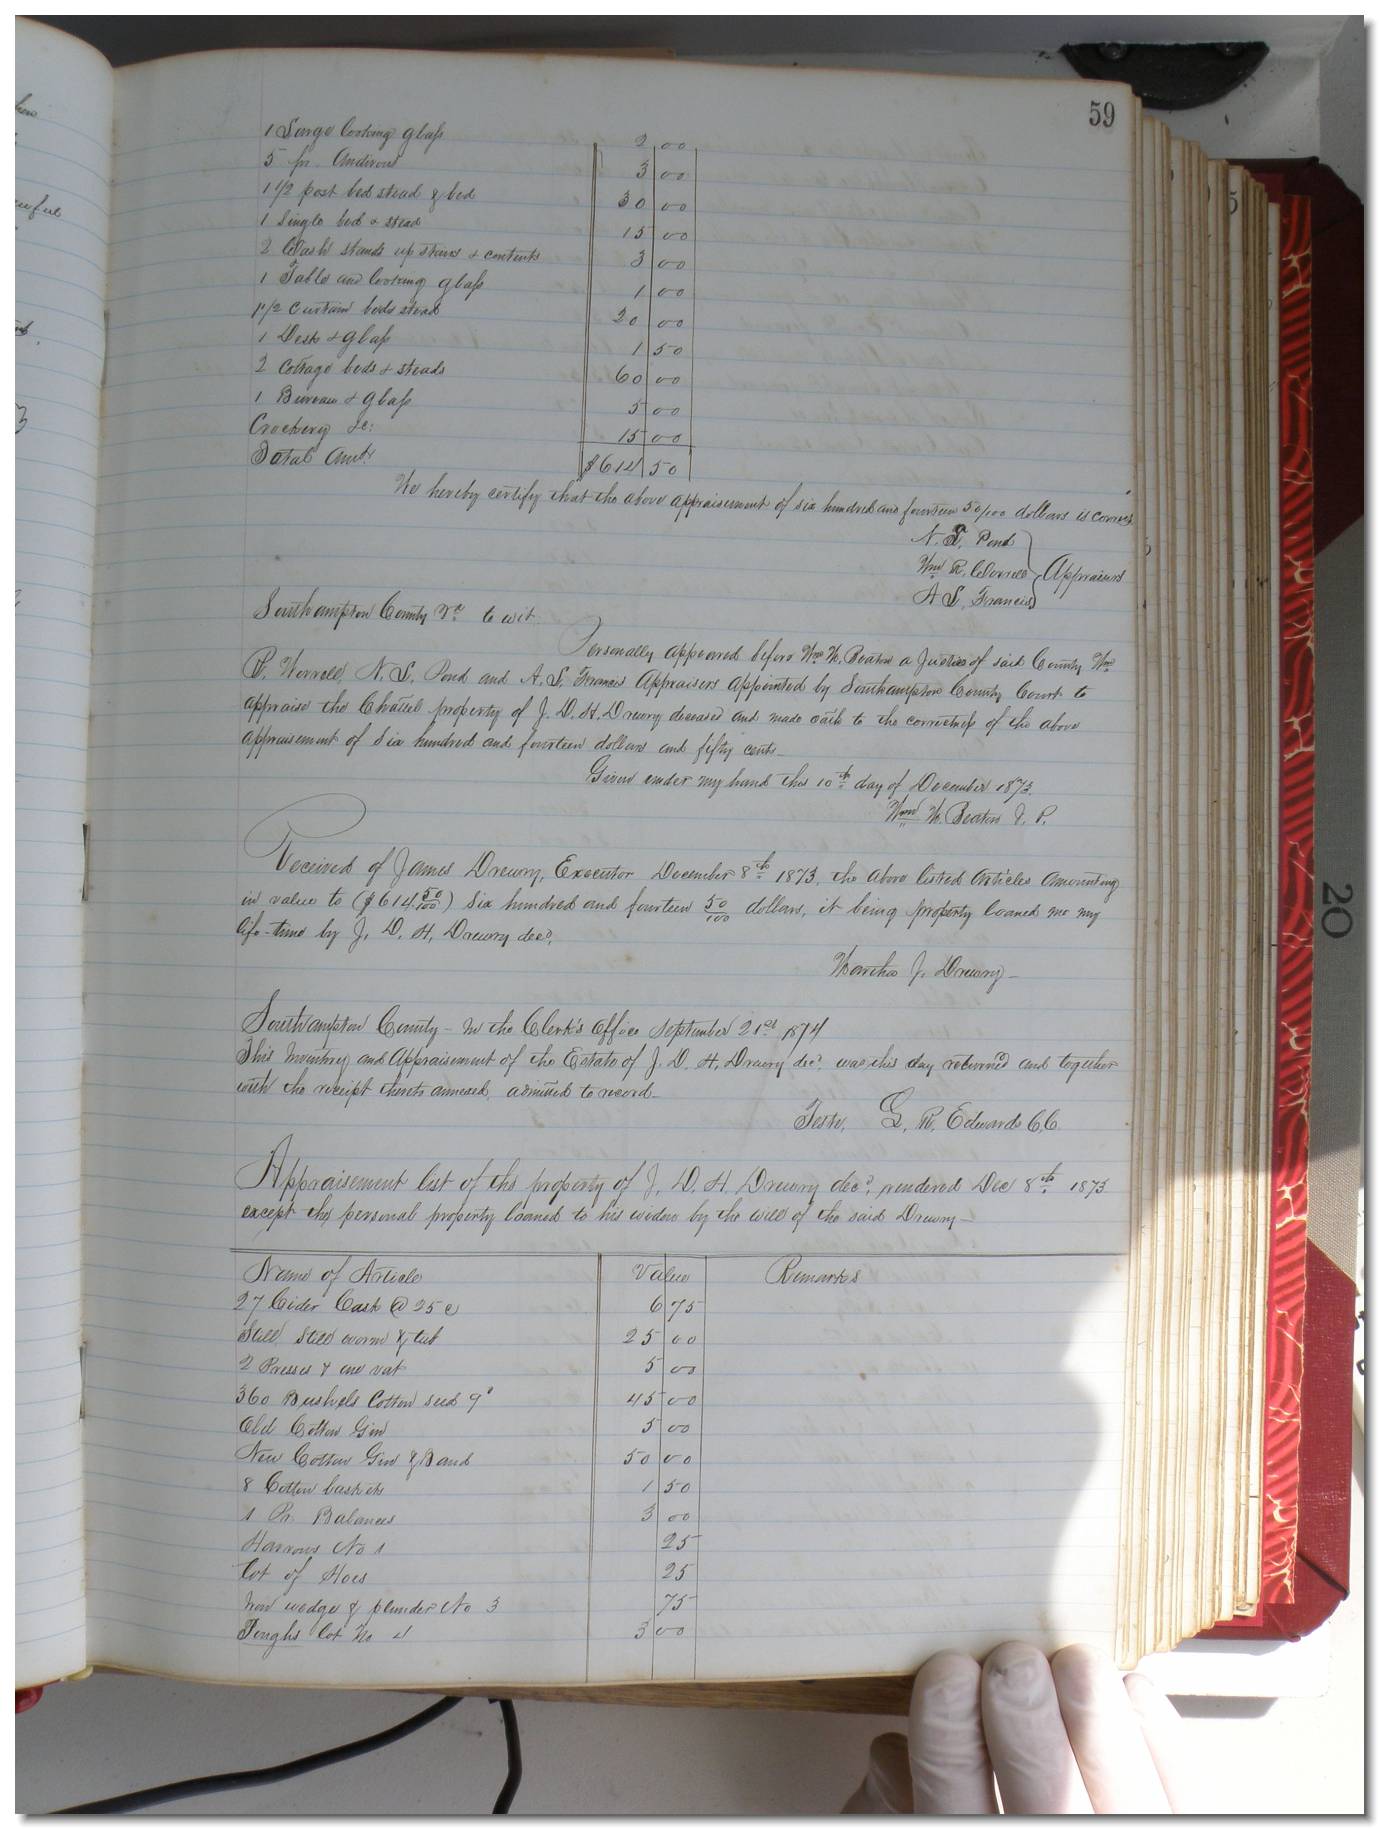 59
1 Large looking glass 2 00
5 pr. Andirons 3 00
1 1/2 post bed stead & bed 30 00
1 Single bed & stead 15 00
2 Wash stands up stairs & contents 3 00
1 Table and looking glass 1 00
1 1/2 Curtain beds stead 20 00
1 Desk & glass 1 50
2 Cottage beds & steads 60 00
1 Bureau & glass 5 00
Crockery &c: 15 00
Total Amt. $614 50
We hereby certify that the above appraisement of six hundred and fourteen 50/100 dollars is correct
N. S. Pond
Wm R. Worrell Appraisers
A S. Francis
Southampton County Va to wit
Personally appeared before Wm W. Beaton a Justice of said County Wm
R. Worrell, N. S. Pond and A. S. Francis Appraisers appointed by Southampton County Court to
appraise the Chattel property of J. D. H. Drewry deceased and made oath to the correctness of the above
appraisement of six hundred and fourteen dollars and fifty cents
Given under my hand this 10th day of December 1873.
Wm W. Beaton J. P.
Received of James Drewry, Executor December 8th 1873, the above listed articles amounting
in value to ($614 50/100) six hundred and fourteen 50/100 dollars, it being property loaned me my
life-time by J. D. H. Drewry decd.
Martha J. Drewry
Southampton County - In the Clerk's Office September 21st 1874
This Inventory and Appraisement of the Estate of J. D. H. Drewry decd. was this day returned and together
with the receipt thereto annexed, admitted to record
Teste, L. R. Edwards C.C.
Appraisement list of the property of J. D. H. Drewry decd, rendered Dec 8th 1873
except the personal property loaned to his widow by the will of the said Drewry
Name of Article Value Remarks
27 Cider Cask @ 25 c 6 75
Still, Still worm & tub 25 00
2 Presses & one vat 5 00
360 Bushels Cotton seed 45 00
Old Cotton Gin 5 00
New Cotton Gin & Band 50 00
8 Cotton baskets 1 50
1 Pr. Balances 3 00
Harrows No 1 25
Lot of Hoes 25
Iron wedge & plunder No 3 75
Lot No 4 3 00
20